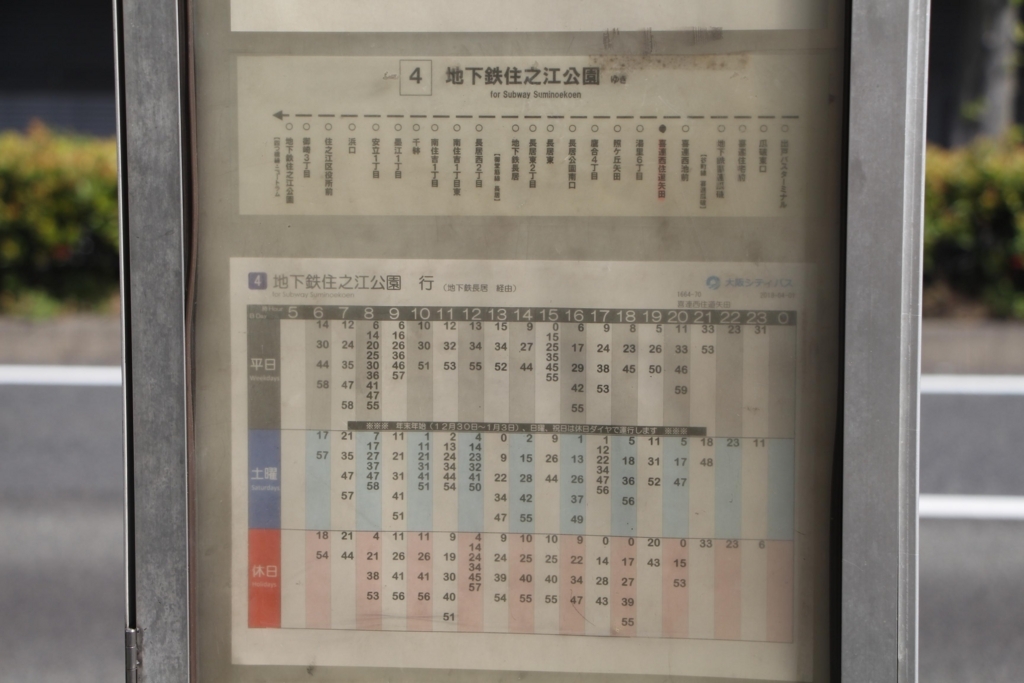 4 地下鉄住之江公園 ゆき
for Subway Suminoekoen
地下鉄住之江公園
御崎3丁目
住之江区役所前
浜口
安立1丁目
墨江1丁目
千躰
南住吉1丁目
南住吉1丁目東
長居西2丁目
地下鉄長居
長居東2丁目
長居東
長居公園南口
鷹合4丁目
湯里6丁目
喜連西住道矢田
喜連西池前
4 地下鉄住之江公園 行 (地下鉄長居 経由)
for Subway Suminoekoen
大阪シティバス
喜連西住道矢田
5 6 7 8 9 10 11 12 13 14 15 16 17 18 19 20 21 22 23 0
平日
Weekdays
14 12 6 6 10 12 13 15 9 0 6 9 8 5 11 33 23 31
14 16 15
30 24 20 26 30 32 34 34 27 25 17 24 23 26 33 53
25 36 35
44 35 30 46 51 53 55 52 44 45 29 38 45 50 46
36 57 55
58 47 41 42 53 59
47
58 55 55
※※※ 年末年始(12月30日～1月3日)、日曜、祝日は休日ダイヤで運行します ※※※
土曜
Saturdays
17 21 7 11 1 2 4 0 2 9 1 1 5 11 5 18 23 11
17 11 13 14 12
57 35 27 21 21 24 23 9 15 26 13 22 18 31 17 48
37 31 34 32 34
47 47 31 41 44 41 22 28 44 26 47 36 52 47
58 51 54 50 56
57 41 34 42 37 56
51 47 55 49
休日
Holidays
18 21 4 11 11 9 4 9 10 10 9 0 0 20 0 33 23 6
14
54 44 21 26 26 19 24 24 25 25 22 14 17 43 15
34
38 41 41 30 45 39 40 40 34 28 27 53
57
53 56 56 40 54 55 55 47 43 39
51 55